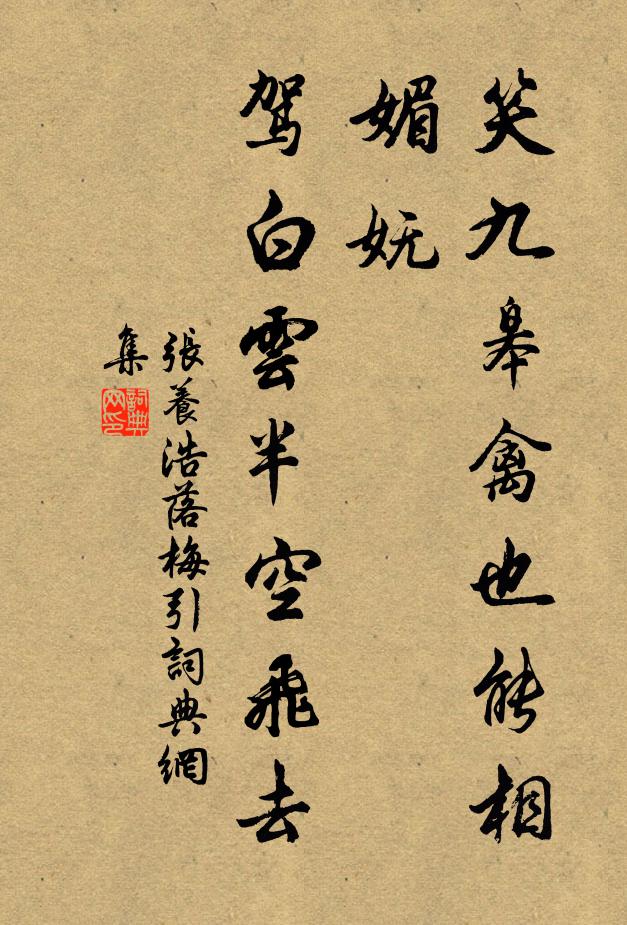 笑九皋禽也能相
媚妩
驾白雲半空飛去
張養浩落梅引詞典網
集
詞典
网印